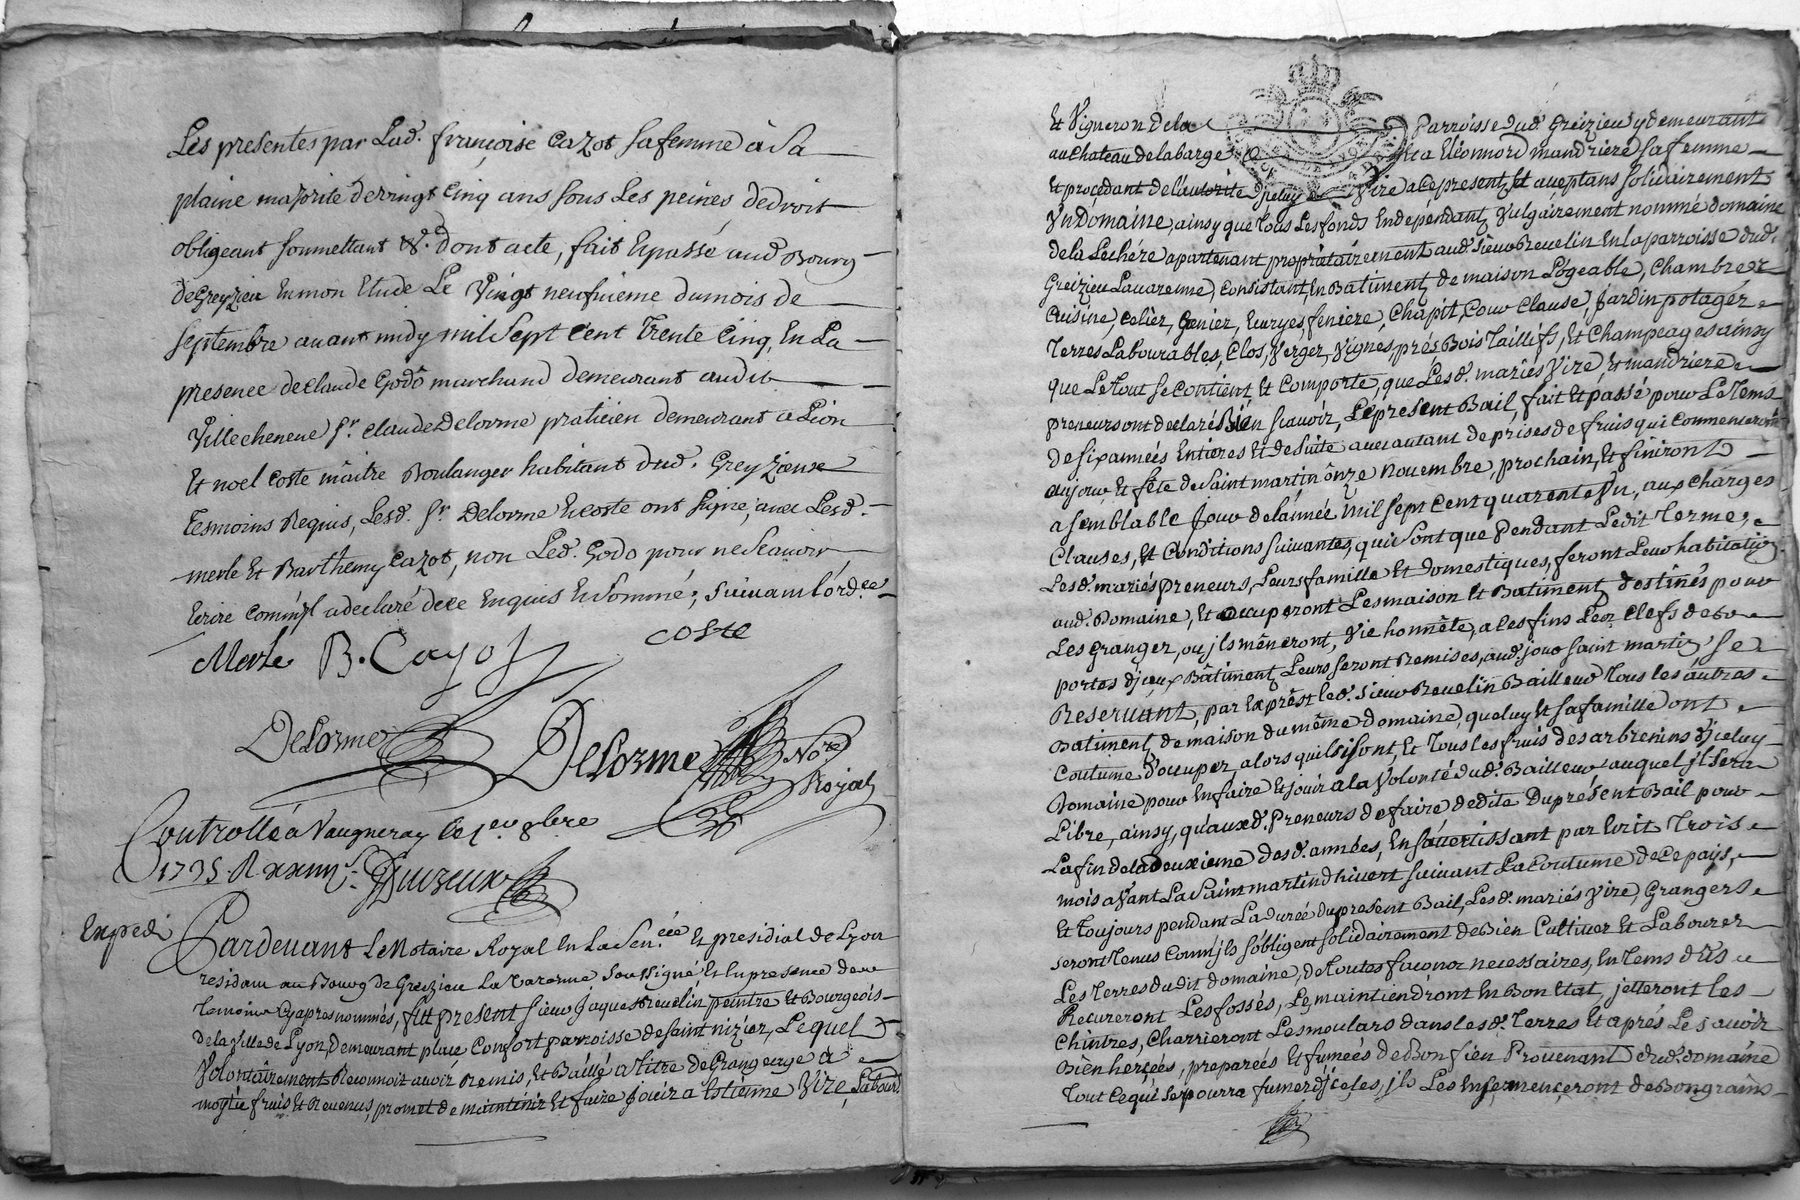 Les presentes par Lad. françoise Cazot sa femme à sa
plaine majorité de vingt cinq ans sous Les peines de droit
obligeant soumettant &. dont acte, fait Et passé aud Bourg
de Greyzieu En mon Etude Le Vingt neufuieme du mois de
septembre auant midy mil sept cent trente Cinq, En La
presence de Claude Godô marchand demeurant audit
Villecheneue sr. Claude Delorme praticien demeurant a Lion
Et noel Coste mâitre Boulanger habitant dud. Greyzieux
Tesmoins Requis, Lesd. sr Delorme Et Coste ont signé, auec Lesd.
merle Et Barthemy Cazot, non Led. Godo pour ne scauoir
Ecrire comme jl a declaré de ce Enquis Et sommé; suiuant l'ord.ce
Merle B. Cayot Coste
DeLorme DeLorme Nore
Royal
Controllé à Vaugneray le 1er 8bre
1735 R
Expedi
Pardeuant Le Notaire Royal En La Sen.cée Et presidial de Lyon
residant au Bourg de Greizieu La Varenne soussigné Et En presence de
Temoins Cy apres nommés, fut present sieur Jaques Reuelin peintre Et Bourgeois
de la Ville de Lyon, Demeurant place Confort parroisse de saint nizier, Lequel
Volontairement Reconnoit auoir Remis, Et Baillé a titre de Grangeage a
moytié fruis Et Reuenus, promet de maintenir Et faire joüir a Estienne Vire, Labour.
Et Vigneron de la Parroisse dud. Greizieu y demeurant
au Chateau de la barge Et a Eleonnord mandriere sa femme
Et procedant de l'autorité dud. Vire a ce present, Et aceptans solidairement
Vn Domaine, ainsy que Tous Les fonds En dependant, Vulgairement nommé domaine
de la Lechére apartenant proprietairement aud. sieur Reuelin En la parroisse dud.
Greizieu La varenne, consistant, En Batiment, de maison Logeable, Chambre
Cuisine, Celier, Grenier, Ecuryes, feniere, Chapit, Cour Clause, Jardin potager
Terres Labourables, Clos, Verger, Vignes, prés Bois Taillifs, Et Champeages ainsy
que Le Tout se Contient, Et Comporte, que Lesd. mariés Vire, Et mandriere
preneurs ont declarés Bien scauoir, Le present Bail, fait Et passé pour Le Tems
de six années Entieres Et de suite auec autant de prises de fruis qui Commenceront
au jour Et fête de saint martin ônze nouembre, prochain, Et finiront
a semblable Jour de lannée mil sept Cent quarente Vn, aux Charges
Clauses, Et Conditions suiuantes, qui sont que Pendant Ledit Terme,
Lesd. mariés preneurs, Leurs famille Et Domestiques, feront Leur habitation
aud. Domaine, Et occuperont Les maison Et Batiment, destinés pour
Les Granger, ou jls mêneront, Vie honnête, a Ces fins Les Clefs des
portes d'jceux Bâtiment, Leurs seront Remises, aud. jour saint martin se
Reseruant, par Exprêst led. sieur Reuelin Bailleur Tous les autres
Batiment, de maison du même domaine, que luy Et sa famille ont
Coutume d'occuper, alors quils y sont, Et Tous les fruis des arbres d'jceluy
Domaine pour En faire Et jouir a la Volonté dud. Bailleur auquel jl sera
Libre, ainsy, qu'auxd. Preneurs de faire dedite Du présent Bail pour
La fin de la deuxieme desd. années, En s'auertissant par Ecrit Trois
mois auant La saint martin dhiuert suiuant La Coutume de Ce pays,
Et Toujours pendant La durée du present Bail, Les d. mariés Vire, Grangers
seront Tenus Comm'jls s'obligent solidairement de Bien Cultiuer Et Labourer
Les Terres dudit domaine, de Toutes façons necessaires, En Tems dûs
Recureront Les fossés, Les maintiendront En Bon Etat, jetteront les
Chintres, Charrieront Les moulars dans Lesd. Terres Et aprés Les auoir
Bien hersées, preparées Et fumées de Bon fien Prouenant dud. domaine
Tout Ce qui se pourra fumer d'jcelles, jls Les Ensemenceront de Bon grains